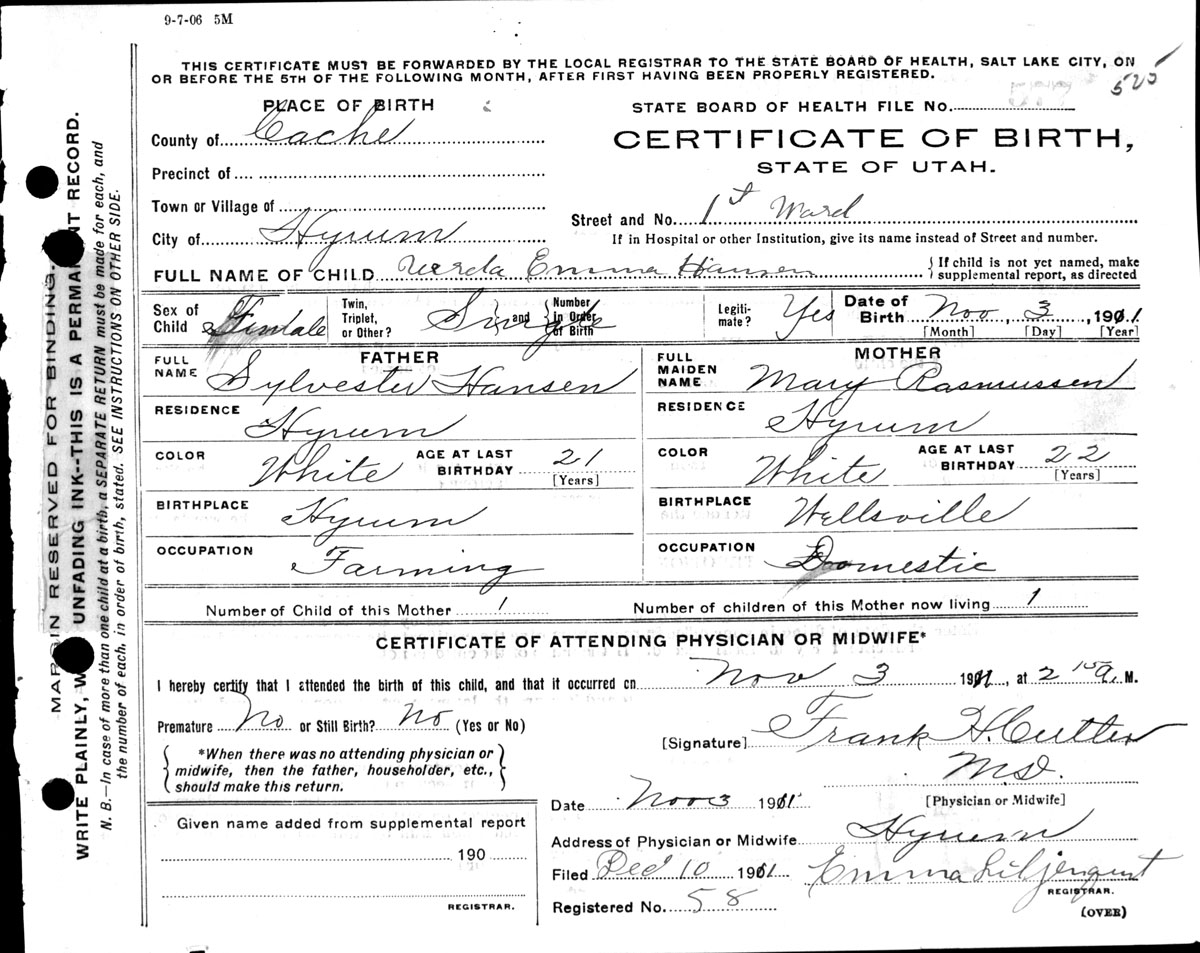 9-7-06 5M
THIS CERTIFICATE MUST BE FORWARDED BY THE LOCAL REGISTRAR TO THE STATE BOARD OF HEALTH, SALT LAKE CITY, ON
OR BEFORE THE 5TH OF THE FOLLOWING MONTH, AFTER FIRST HAVING BEEN PROPERLY REGISTERED.
525
PLACE OF BIRTH
STATE BOARD OF HEALTH FILE No.
County of Cache
CERTIFICATE OF BIRTH,
STATE OF UTAH.
Precinct of
Town or Village of
Street and No. 1st Ward
City of Hyrum
If in Hospital or other Institution, give its name instead of Street and number.
FULL NAME OF CHILD Verda Emma Hansen
If child is not yet named, make supplemental report, as directed
Sex of Child Female
Twin, Triplet, or Other? Single and Number in Order of Birth
Legiti-mate? Yes
Date of Birth Nov 3, 1911
[Month] [Day] [Year]
FATHER
MOTHER
FULL NAME Sylvester Hansen
FULL MAIDEN NAME Mary Rasmussen
RESIDENCE Hyrum
RESIDENCE Hyrum
COLOR White AGE AT LAST BIRTHDAY 21 [Years]
COLOR White AGE AT LAST BIRTHDAY 22 [Years]
BIRTHPLACE Hyrum
BIRTHPLACE Wellsville
OCCUPATION Farming
OCCUPATION Domestic
Number of Child of this Mother 1
Number of children of this Mother now living 1
CERTIFICATE OF ATTENDING PHYSICIAN OR MIDWIFE*
I hereby certify that I attended the birth of this child, and that it occurred on Nov 3 1911, at 2 15 a. M.
Premature No or Still Birth? No (Yes or No)
[Signature] Frank H. Cutler
M.D.
[Physician or Midwife]
*When there was no attending physician or
midwife, then the father, householder, etc.,
should make this return.
Date Nov 3 1911
Given name added from supplemental report
190
REGISTRAR.
Address of Physician or Midwife Hyrum
Filed Dec 10 1911 Emma Liljenquist
REGISTRAR.
Registered No. 58
(OVER)
MARGIN RESERVED FOR BINDING.
WRITE PLAINLY, W UNFADING INK--THIS IS A PERMANENT RECORD.
N. B.—In case of more than one child at a birth, a SEPARATE RETURN must be made for each, and
the number of each, in order of birth, stated. SEE INSTRUCTIONS ON OTHER SIDE.